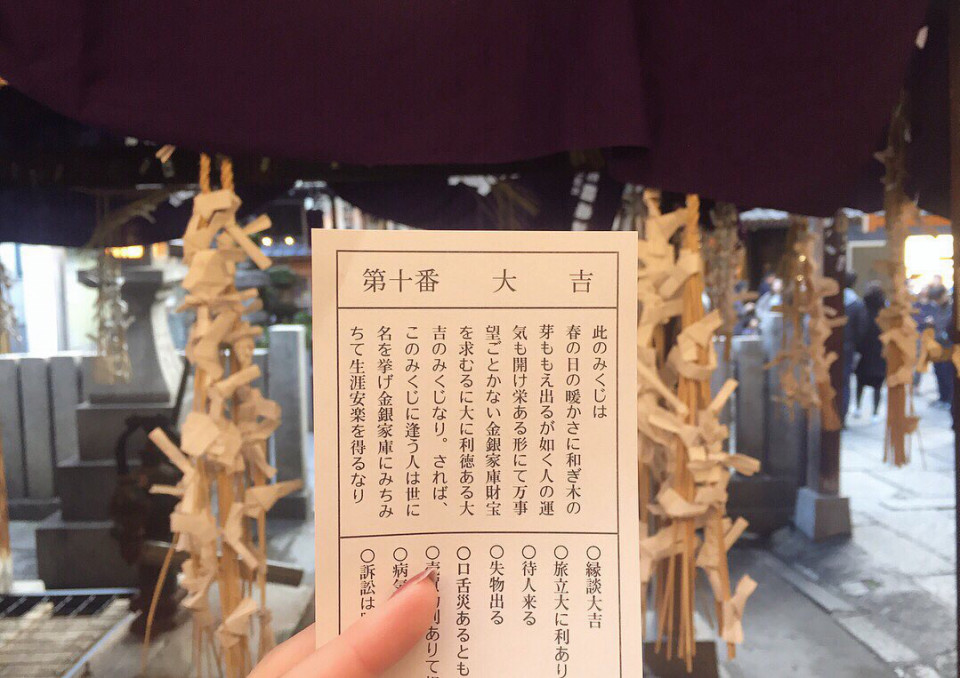 第十番 大 吉
此のみくじは
春の日の暖かさに和ぎ木の
芽ももえ出るが如く人の運
気も開け栄ある形にて万事
望ごとかない金銀家庫財宝
を求むるに大に利徳ある大
吉のみくじなり。されば、
このみくじに逢う人は世に
名を挙げ金銀家庫にみちみ
ちて生涯安楽を得るなり
○縁談大吉
○旅立大に利あり
○待人来る
○失物出る
○口舌災あるとも
○売買力利ありて
○病気
○訴訟は